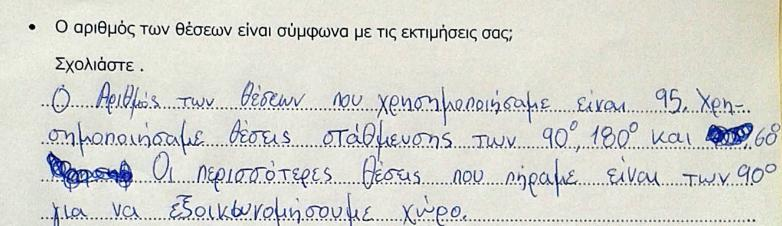 • Ο αριθμός των θέσεων είναι σύμφωνα με τις εκτιμήσεις σας;
Σχολιάστε .
Ο Αριθμός των θέσεων που χρησημοποιήσαμε είναι 95. Χρη-
σημοποιήσαμε θέσεις στάθμευσης των 90°, 180° και 60°
Οι περισσότερες θέσεις που πήραμε είναι των 90°
για να εξοικωνομήσουμε χώρο.